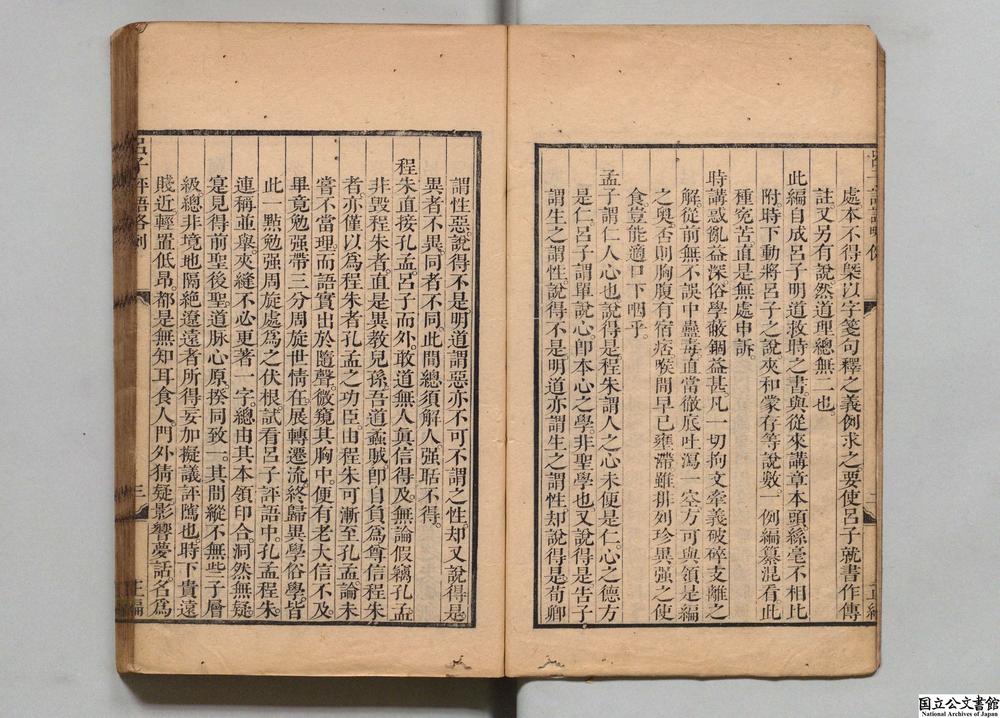 處本不得槩以字箋句釋之義例求之要使呂子就書作傳
註又另有說然道理總無二也
此編自成呂子明道救時之書與從來講章本頭絲毫不相比
附時下動將呂子之說夾和蒙存等說數一例編纂混看此
種寃苦直是無處申訴
時講惑亂益深俗學蔽錮益甚凡一切拘文牽義破碎支離之
解從前無不誤中蠱毒直當徹底吐瀉一空方可與領是編
之奧否則胸腹有宿痞喉間早已壅滯雖排列珍異强之使
食豈能適口下咽乎
孟子謂仁人心也說得是程朱謂人之心未便是仁心之德方
是仁呂子謂單說心卽本心之學非聖學也又說得是告子
謂生之謂性說得不是明道亦謂生之謂性却說得是荀卿
謂性惡說得不是明道謂惡亦不可不謂之性却又說得是
異者不異同者不同此間總須解人强聒不得
程朱直接孔孟呂子而外敢道無人眞信得及無論假竊孔孟
非毀程朱者直是異教兒孫吾道蟊賊卽自負爲尊信程朱
者亦僅以爲程朱者孔孟之功臣由程朱可漸至孔孟論未
嘗不當理而語實出於隨聲微窺其胸中便有老大信不及
畢竟勉强帶三分周旋世情在展轉遷流終歸異學俗學皆
此一點勉强周旋處爲之伏根試看呂子評語中孔孟程朱
連稱並舉夾縫不必更著一字總由其本領印合洞然無疑
寔見得前聖後聖道脉心原揆同致一其間縱不無些子層
級總非境地隔絶遼遠者所得妄加擬議評隲也時下貴遠
賤近輕置低昂都是無知耳食人門外猜疑影響夢話名爲
呂子評語畧例
三
正編